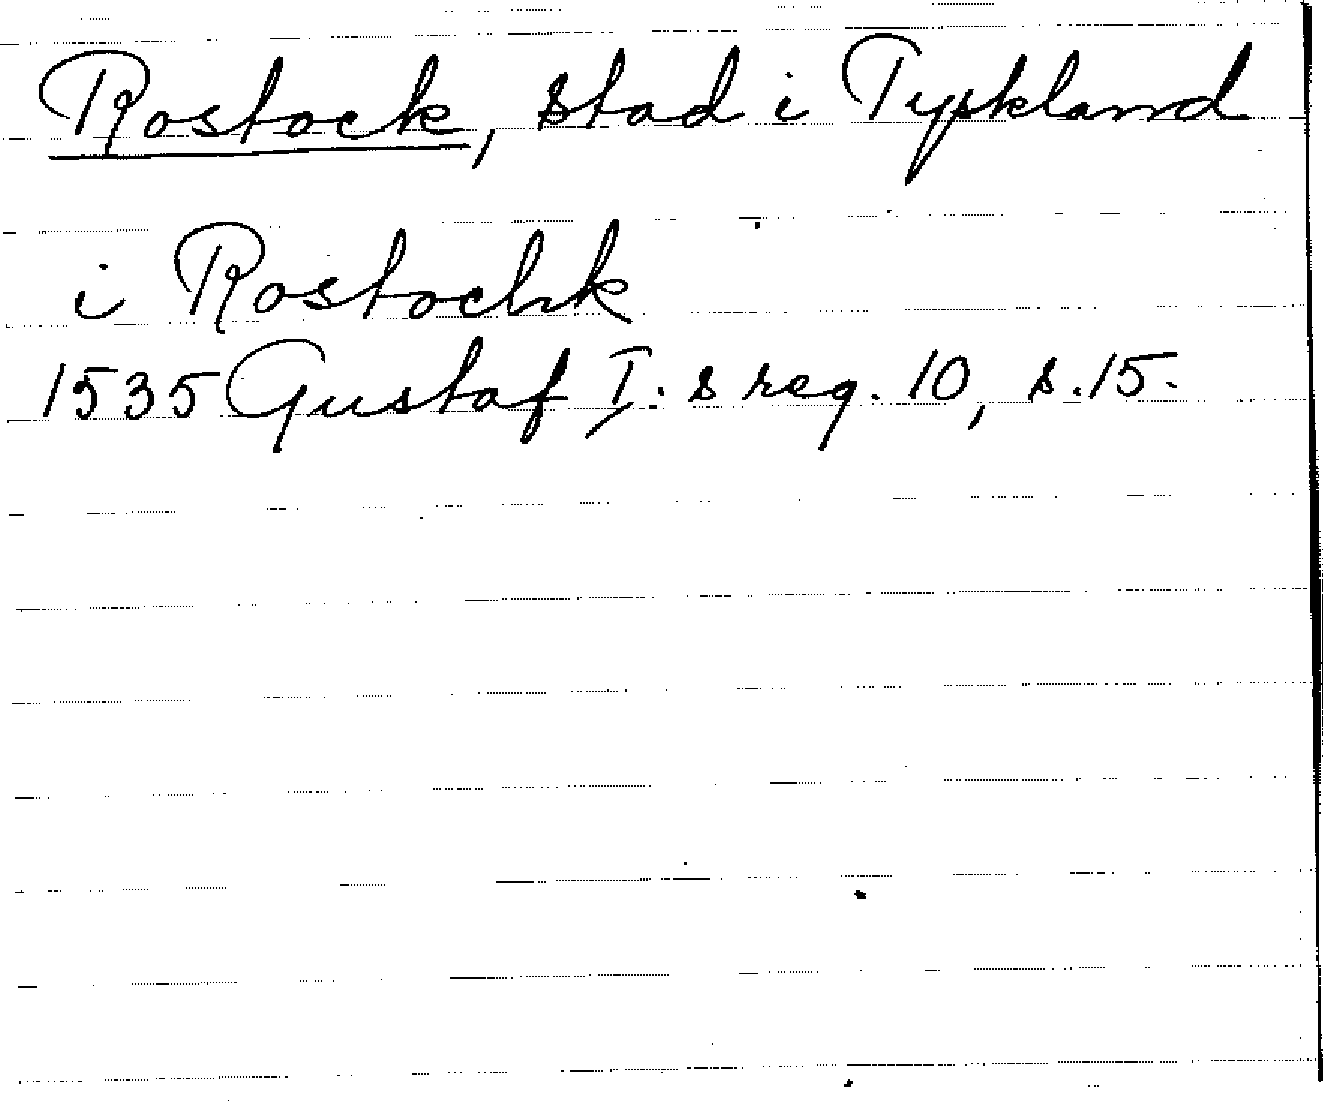 Rostock, stad i Tyskland
i Rostochk
1535 Gustaf I:s reg. 10, s. 15.